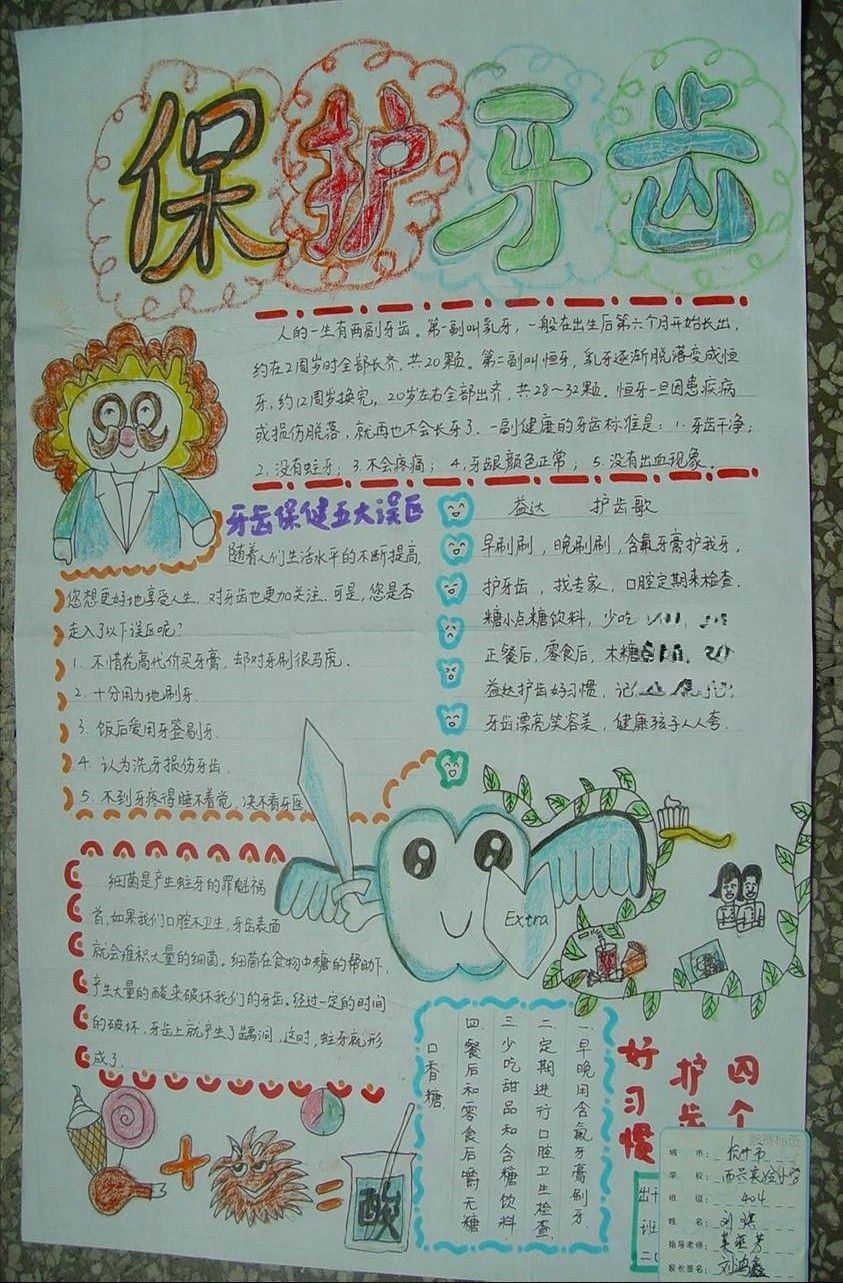 保护牙齿
人的一生有两副牙齿。第一副叫乳牙，一般在出生后第六个月开始长出，
约在2周岁时全部长齐，共20颗。第二副叫恒牙，乳牙逐渐脱落变成恒
牙，约12周岁换完，20岁左右全部出齐，共28～32颗。恒牙一旦因患疾病
或损伤脱落，就再也不会长牙了。一副健康的牙齿标准是：1.牙齿干净；
2.没有蛀牙；3.不会疼痛；4.牙龈颜色正常；5.没有出血现象。
牙齿保健五大误区
随着人们生活水平的不断提高，
您想更好地享受人生.对牙齿也更加关注.可是，您是否
走入了以下误区呢？
1.不惜花高代价买牙膏，却对牙刷很马虎.
2.十分用力地刷牙.
3.饭后爱用牙签剔牙.
4.认为洗牙损伤牙齿.
5.不到牙疼得睡不着觉，决不看牙医
益达 护齿歌
早刷刷，晚刷刷，含氟牙膏护我牙，
护牙齿，找专家，口腔定期来检查.
糖小点糖饮料，少吃
正餐后，零食后，木糖
益达护齿好习惯，记
牙齿漂亮笑容美，健康孩子人人夸.
Extra
细菌是产生蛀牙的罪魁祸
首，如果我们口腔不卫生，牙齿表面
就会堆积大量的细菌。细菌在食物中糖的帮助下，
产生大量的酸来破坏我们的牙齿。经过一定的时间
的破坏，牙齿上就产生了龋洞，这时，蛀牙就形
成了.
+
=
酸
四个
护齿
好习惯
一.早晚用含氟牙膏刷牙.
二.定期进行口腔卫生检查.
三.少吃甜品和含糖饮料
四.餐后和零食后嚼无糖
口香糖.
城市：杭州市
学校：西兴实验小学
班级：404
姓名：刘琪
指导老师：
家长签名：刘鸿鑫